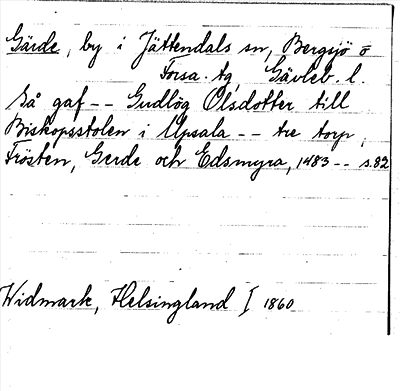 Gärde, by i Jättendals sn, Bergsjö o
Forsa. tg, Gävleb. l.
Så gaf -- Gudlög Olsdotter till
Biskopsstolen i Upsala -- tre torp,
Frösten, Gerde och Edsmyra, 1483 -- s. 82
Widmark, Helsingland I 1860